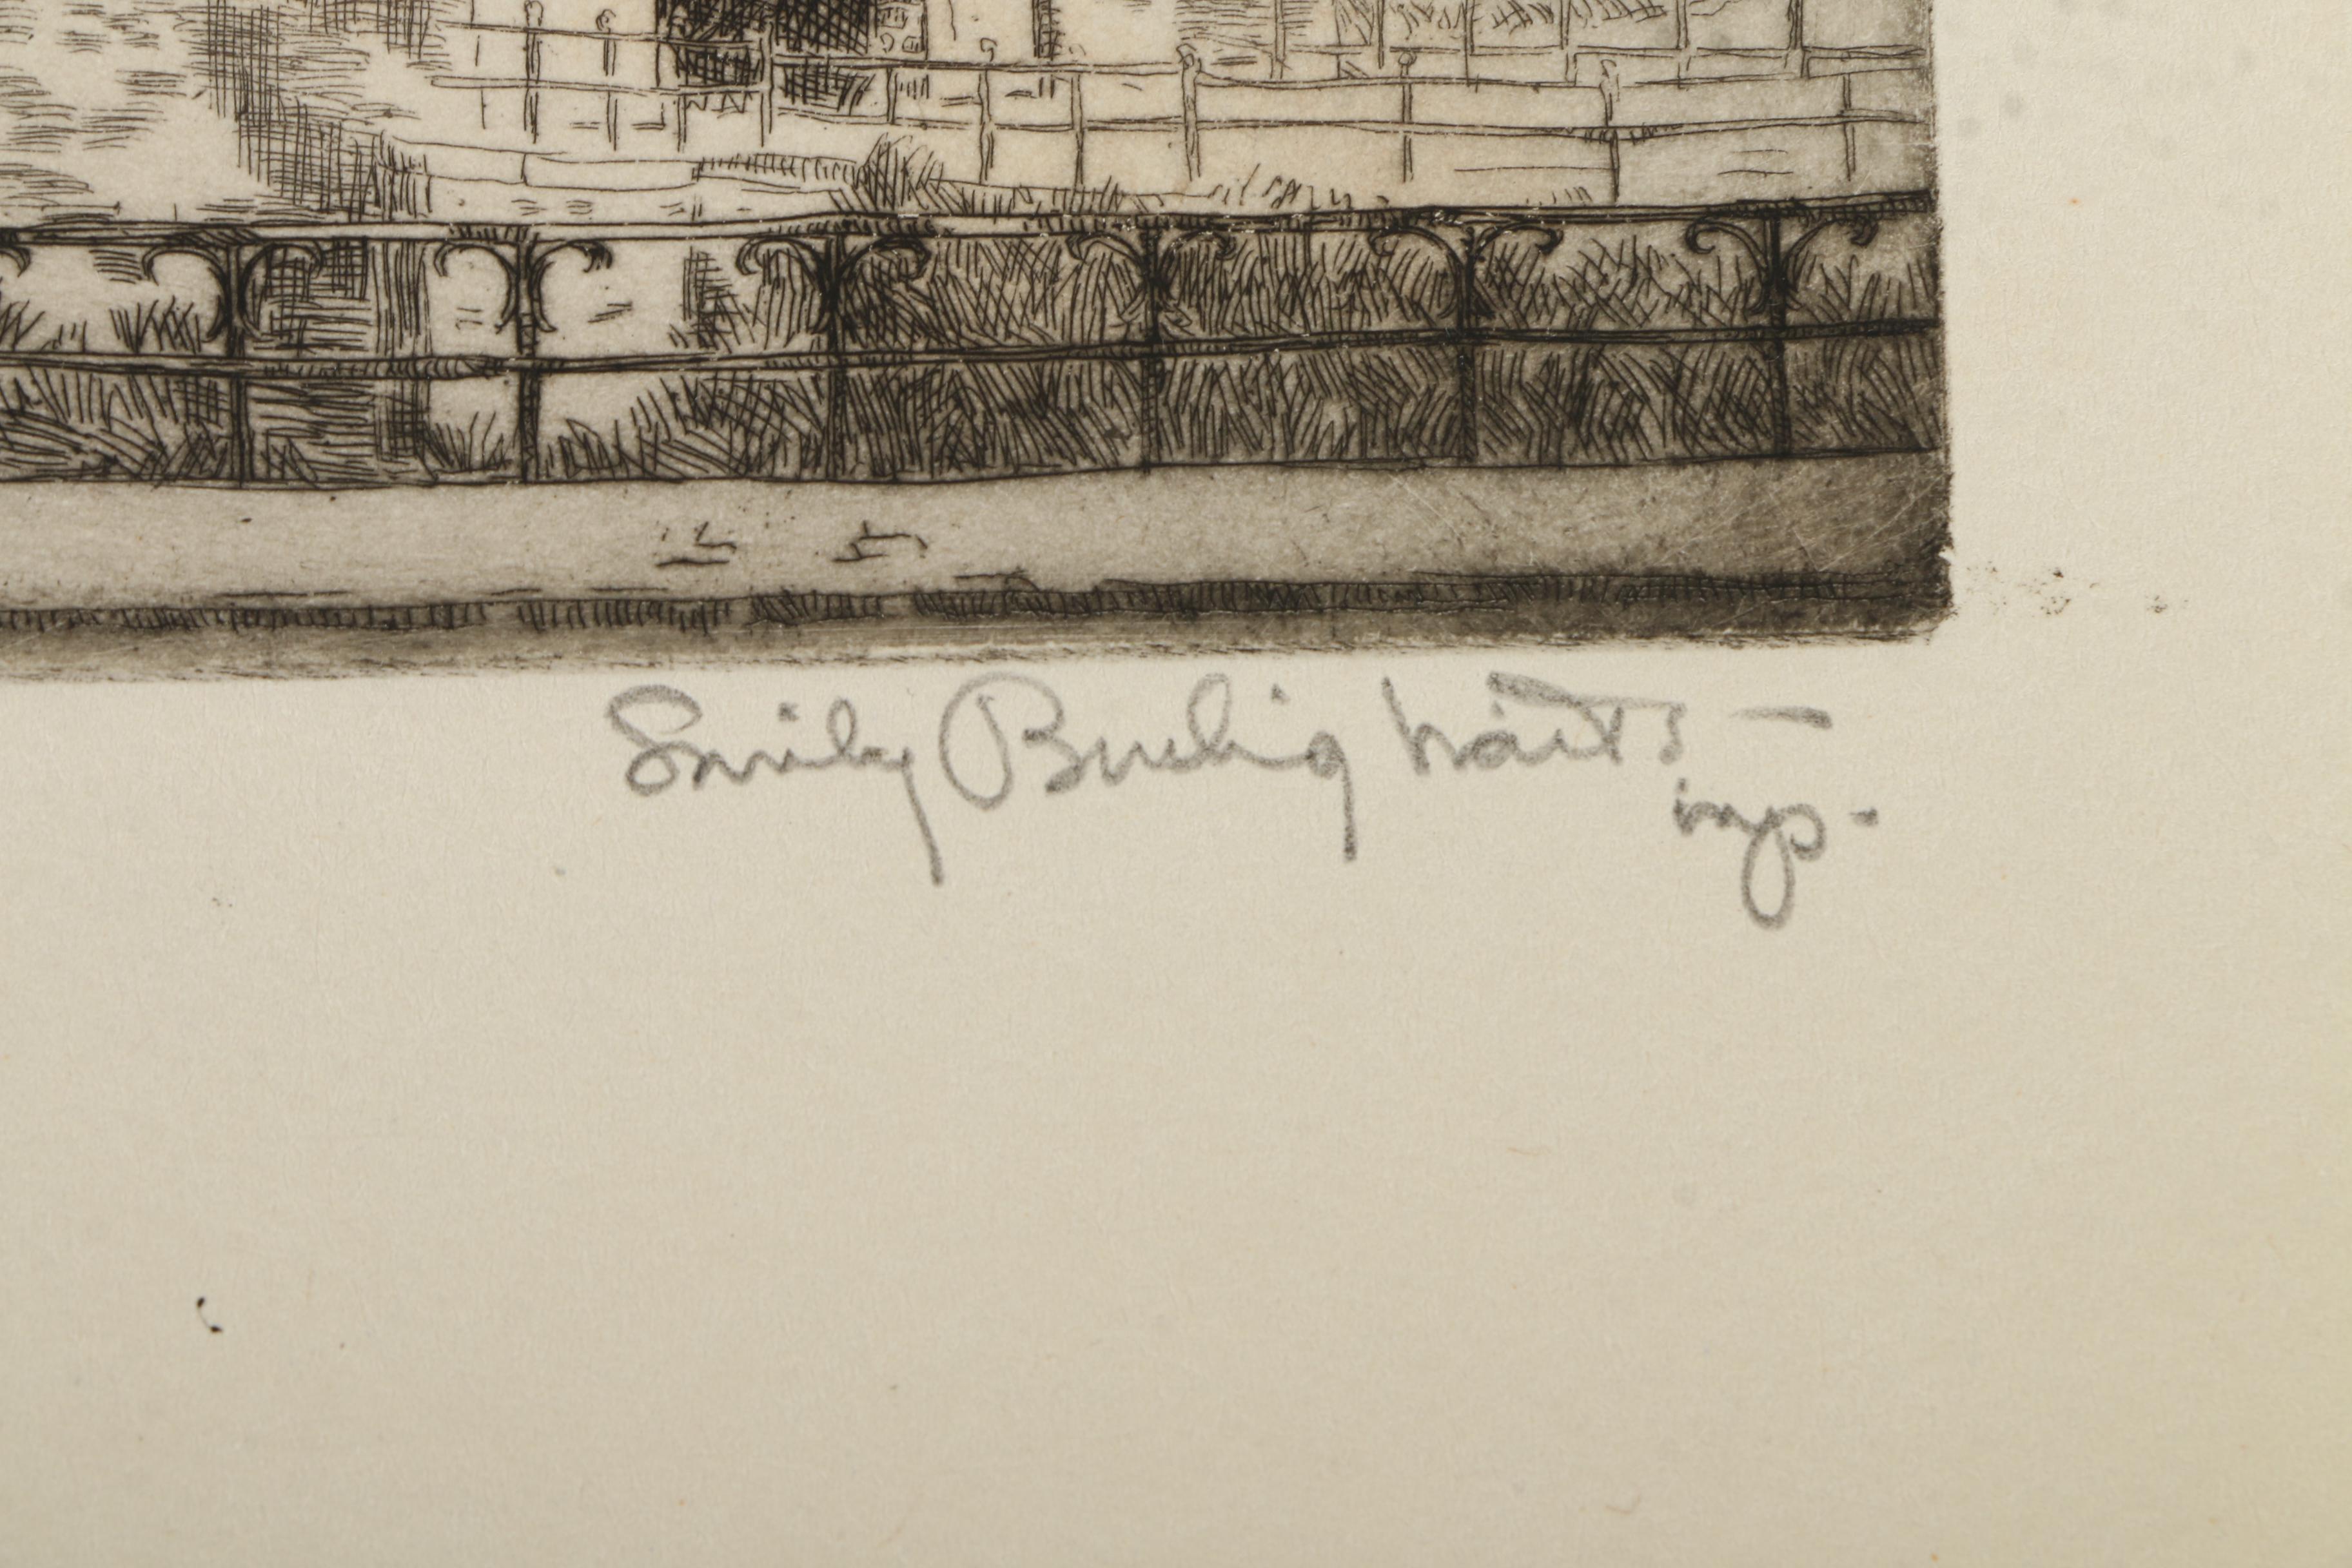 Emily Burling Waite –
imp.